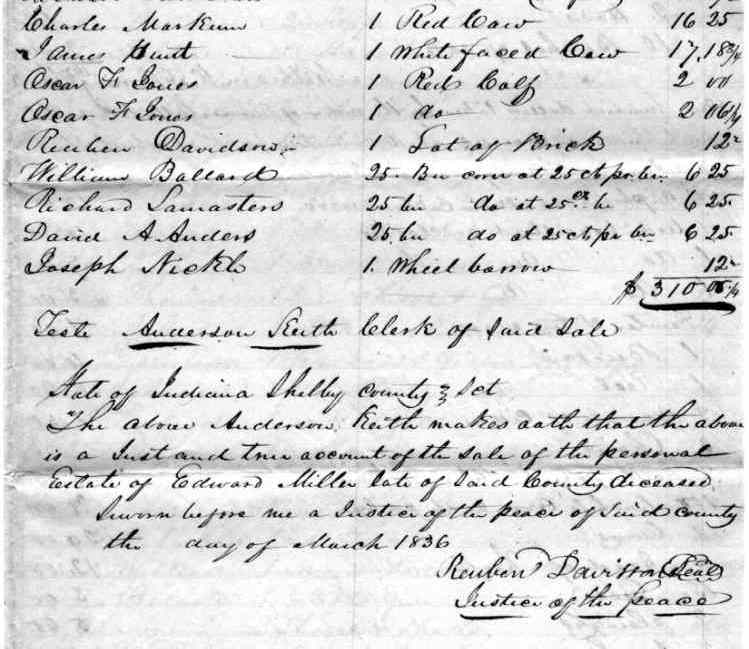 Charles Markum 1 Red Cow 16 25
James Hunt 1 White faced Cow 17.18 3/4
Oscar F Jones 1 Red Calf 2 00
Oscar F Jones 1 do 2 06 1/4
Reuben Davidson 1 Lot of Brick 12
William Ballard 25 Bu corn at 25 cts pr bu 6 25
Richard Lamasters 25 bu do at 25 cts bu 6 25
David A Anders 25 bu do at 25 cts pr bu 6 25
Joseph Nickle 1 Wheel barrow 12
$ 310
Teste Anderson Keith Clerk of Said Sale
State of Indiana Shelby county Sct
The above Anderson Keith makes oath that the above
is a Just and true account of the sale of the personal
Estate of Edward Miller late of Said County deceased
Sworn before me a Justice of the peace of Said County
the day of March 1836
Reuben Davisson (Seal)
Justice of the Peace